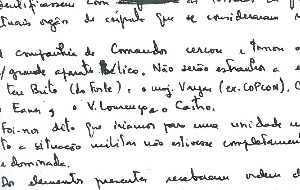 dentificassem com
tuais orgãos de cúpula que se consideravam
companhia de Comandos cercou e tomou o
/grande aparato bélico. Não serão estranhos a e
ten Brito (do Forte), o maj. Vargas (ex. COPCON), C
Eanes, o V. Lourenço e o Castro.
Foi-nos dito que iríamos para uma unidade m
to a situação militar não estivesse completamen
e dominada.
Dos elementos presentes receberam ordem d